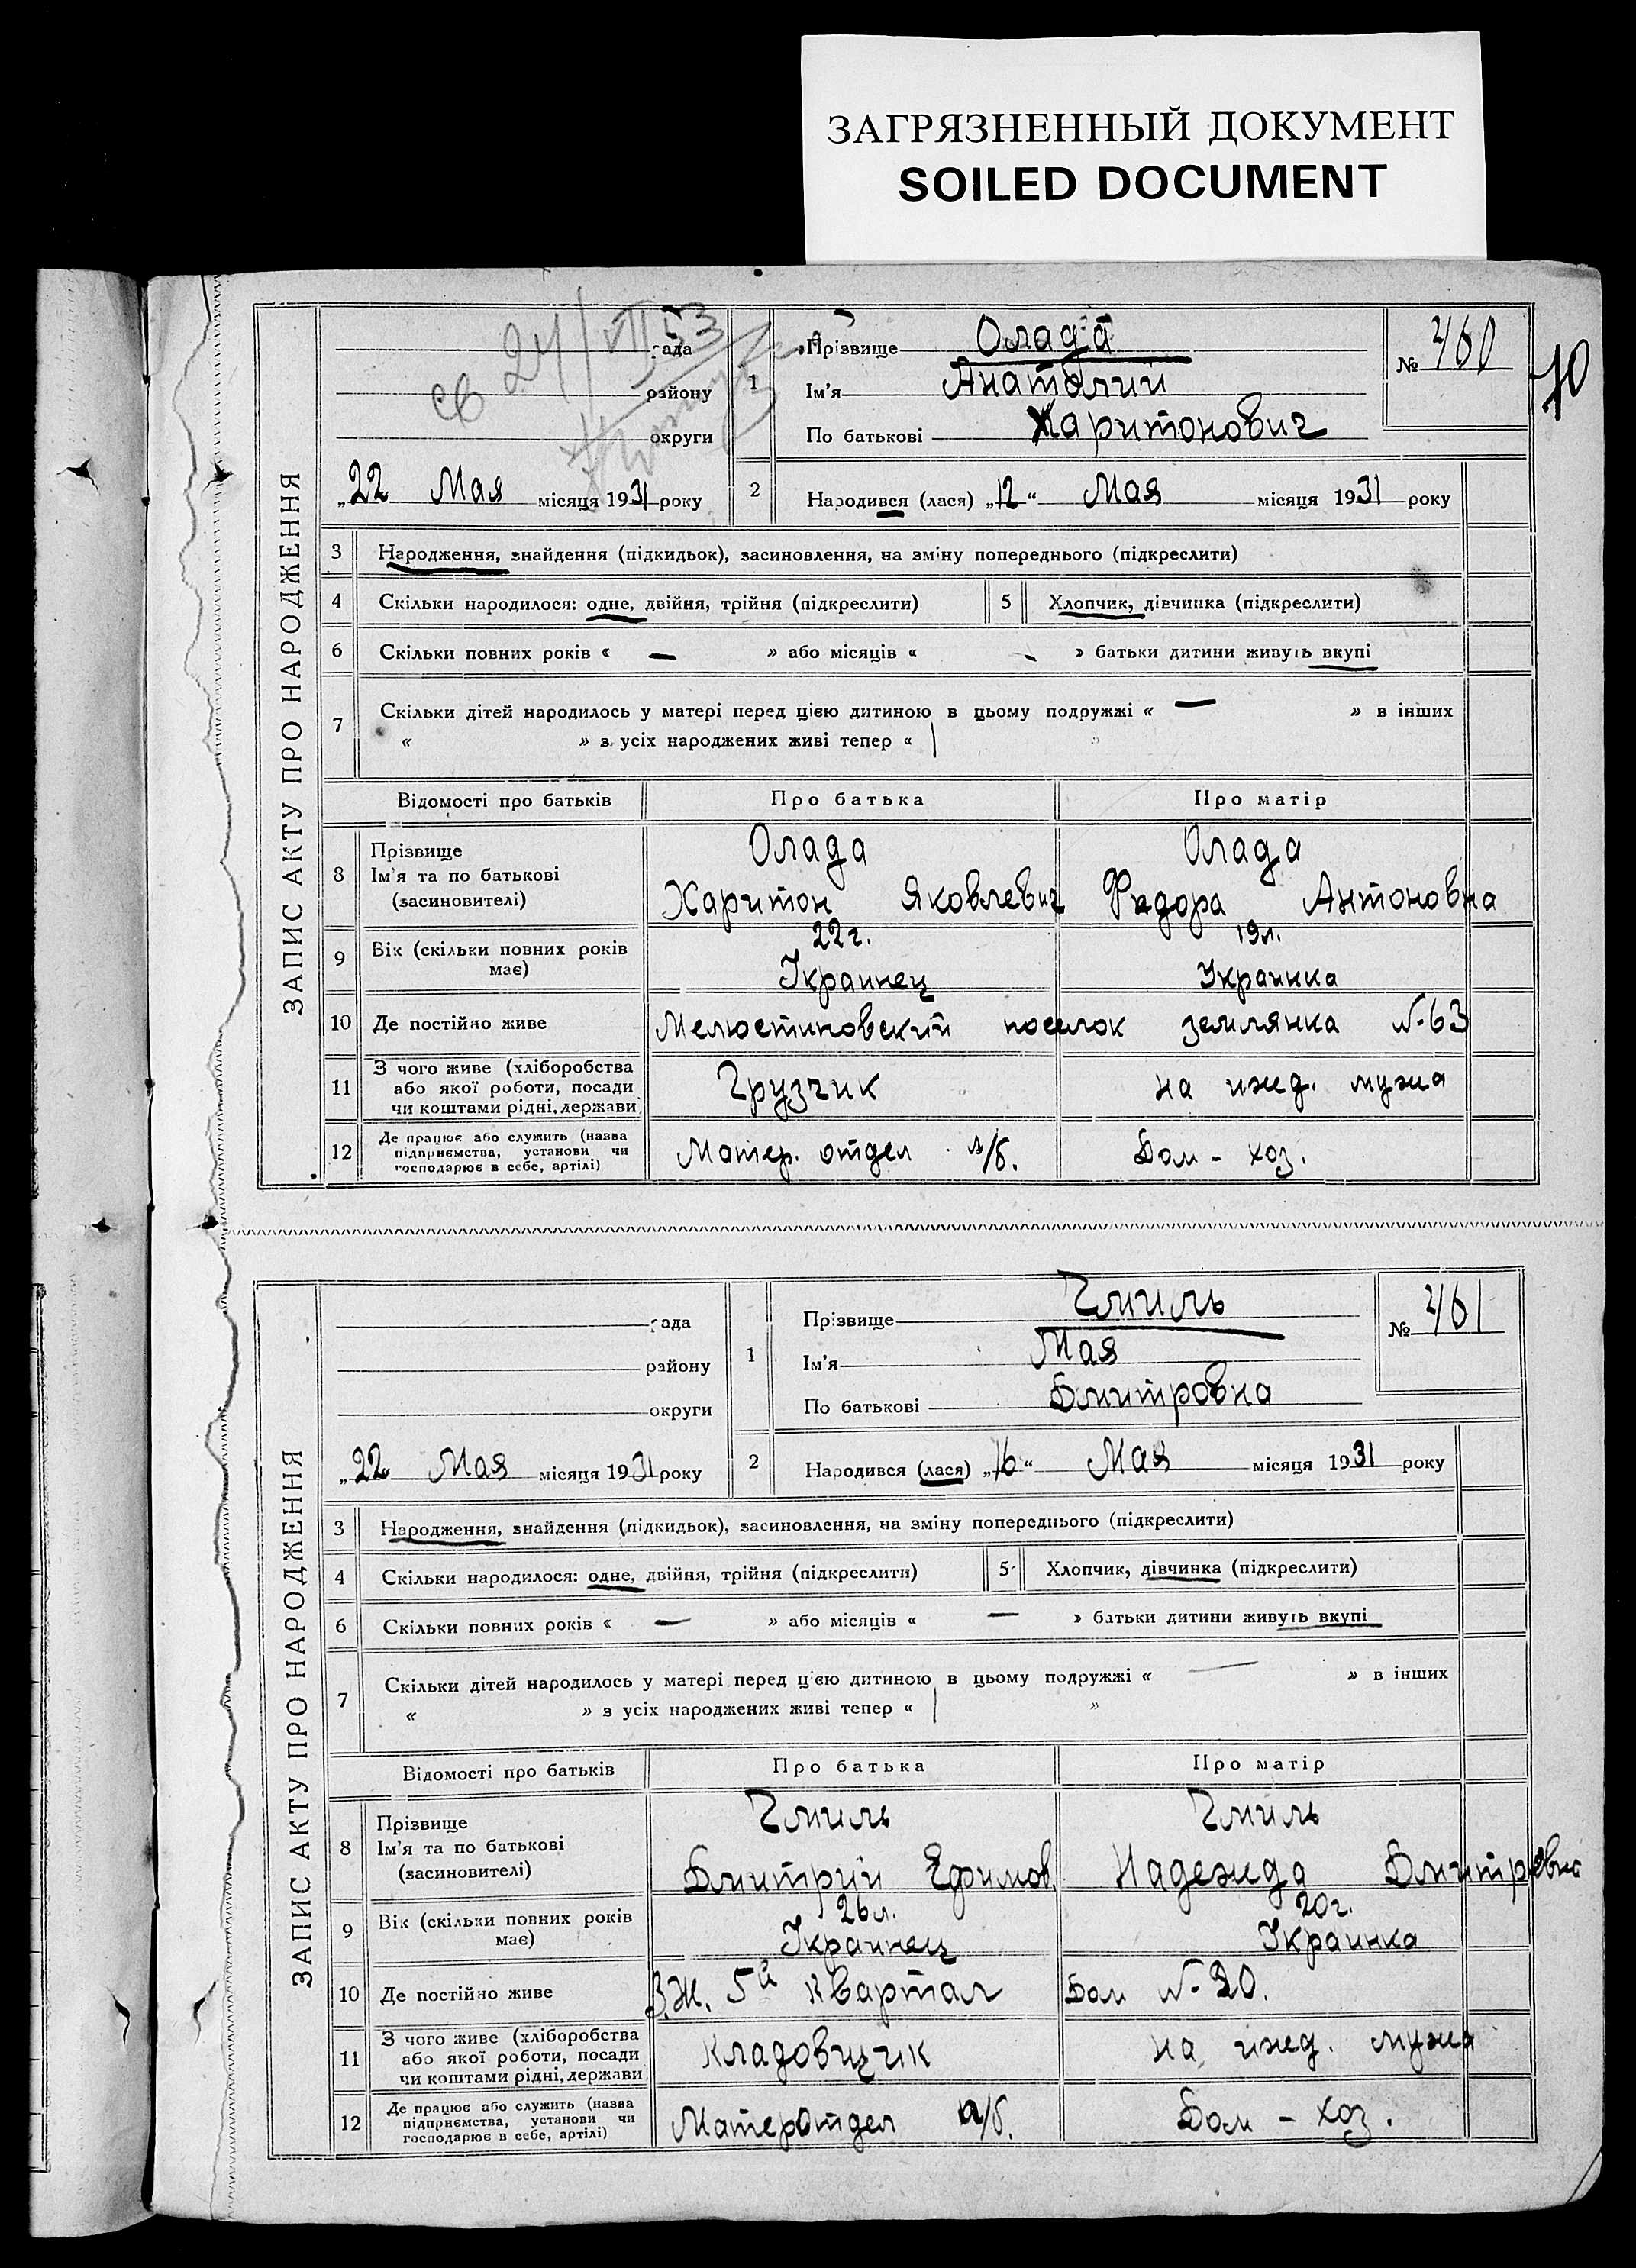 ЗАГРЯЗНЕННЫЙ ДОКУМЕНТ
SOILED DOCUMENT
ЗАПИС АКТУ ПРО НАРОДЖЕННЯ
рада
району
округи
св 24/VII 53
„22 Мая місяця 1931 року
1
Прізвище Олада
Ім'я Анатолий
По батькові Харитонович
№ 460
70
2 Народився (лася) „12“ Мая місяця 1931 року
3 Народження, знайдення (підкидьок), засиновлення, на зміну попереднього (підкреслити)
4 Скільки народилося: одне, двійня, трійня (підкреслити) 5 Хлопчик, дівчинка (підкреслити)
6 Скільки повних років « — » або місяців « - » батьки дитини живуть вкупі
7 Скільки дітей народилось у матері перед цією дитиною в цьому подружжі « — » в інших
« » з усіх народжених живі тепер « | »
Відомості про батьків Про батька Про матір
8 Прізвище Олада Олада
Ім'я та по батькові Харитон Яковлевич Федора Антоновна
(засиновителі)
9 Вік (скільки повних років має) 22 г. 19 л.
Украинец Украинка
10 Де постійно живе Мелюстиновский поселок землянка №63
11 З чого живе (хліборобства
або якої роботи, посади Грузчик на ижд. мужа
чи коштами рідні, держави
12 Де працює або служить (назва
підприємства, установи чи Матер. отдел а/б. Дом - хоз.
господарює в себе, артілі)
ЗАПИС АКТУ ПРО НАРОДЖЕННЯ
рада
району
округи
„22“ Мая місяця 1931 року
1
Прізвище Чмиль
Ім'я Мая
По батькові Дмитровна
№ 461
2 Народився (лася) „16“ Мая місяця 1931 року
3 Народження, знайдення (підкидьок), засиновлення, на зміну попереднього (підкреслити)
4 Скільки народилося: одне, двійня, трійня (підкреслити) 5 Хлопчик, дівчинка (підкреслити)
6 Скільки повних років « — » або місяців « — » батьки дитини живуть вкупі
7 Скільки дітей народилось у матері перед цією дитиною в цьому подружжі « — » в інших
« » з усіх народжених живі тепер « | »
Відомості про батьків Про батька Про матір
8 Прізвище Чмиль Чмиль
Ім'я та по батькові Дмитрий Ефимов. Надежда Дмитровна
(засиновителі)
9 Вік (скільки повних років має) 26 л. 20 г.
Украинец Украинка
10 Де постійно живе В.Ж. 5й квартал Дом №20.
11 З чого живе (хліборобства
або якої роботи, посади Кладовщик на ижд. мужа
чи коштами рідні, держави
12 Де працює або служить (назва
підприємства, установи чи Матеротдел а/б. Дом - хоз.
господарює в себе, артілі)